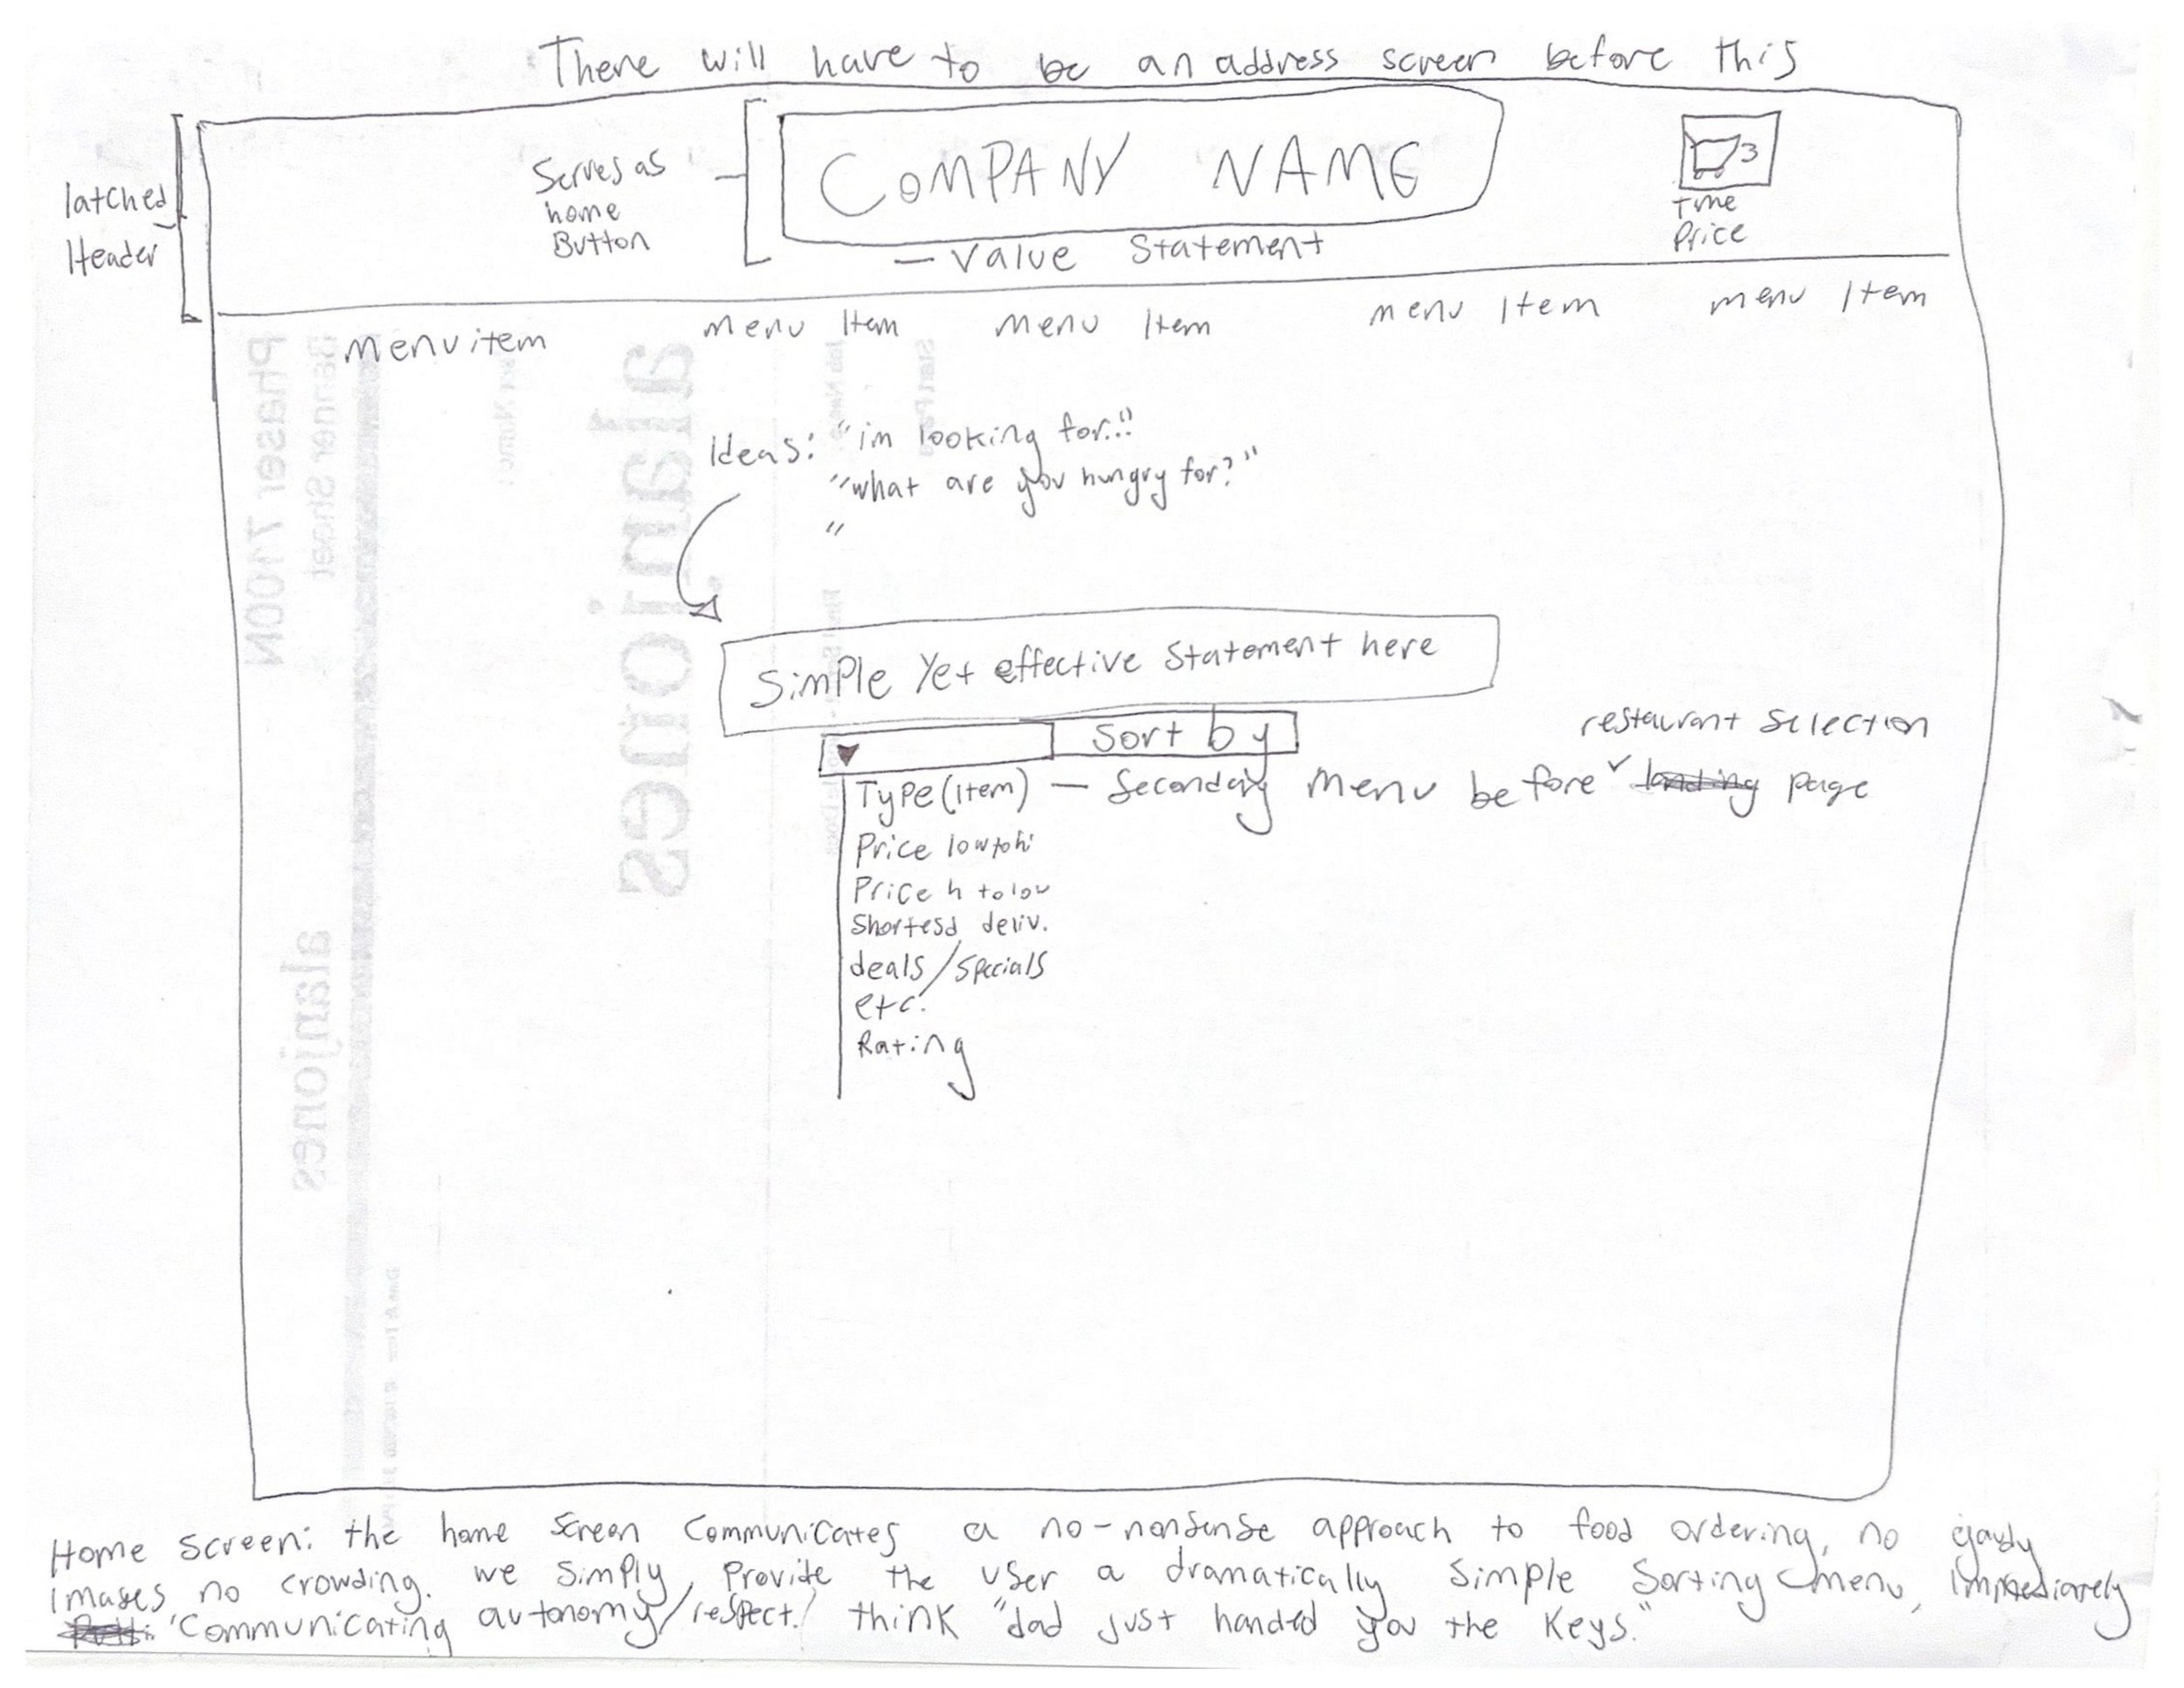 There will have to be an address screen before this
latched
Header
Serves as
home
Button
COMPANY NAME
— Value Statement
3
Time
Price
menu item
menu Item
menu Item
menu Item
menu Item
Ideas: "im looking for..."
"what are you hungry for?"
"
Simple Yet effective Statement here
Sort by
restaurant Selection
Type (item) — Secondary menu before ✓ landing page
Price low to hi
Price h to low
Shortesd deliv.
deals/specials
etc.
Rating
Home Screen: the home screen communicates a no-nonsense approach to food ordering, no gaudy
images no crowding. we simply provide the user a dramatically simple sorting menu, immediately
communicating autonomy/respect. think "dad just handed you the keys."
Phaser 7100N
Banner Sheet
alanjones
alanjones